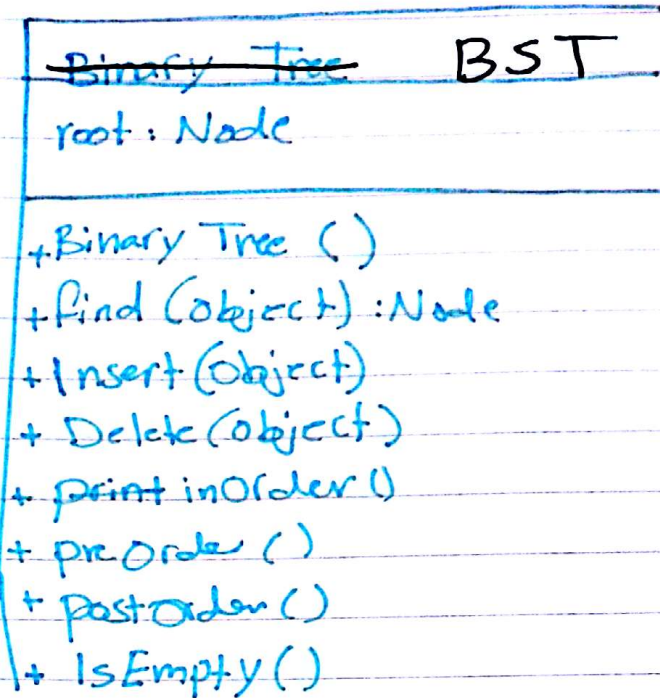 Binary Tree BST
root: Node
+Binary Tree ()
+find (object) :Node
+Insert (object)
+ Delete (object)
+ print inOrder ()
+ preOrder ()
+ PostOrder ()
+ IsEmpty ()